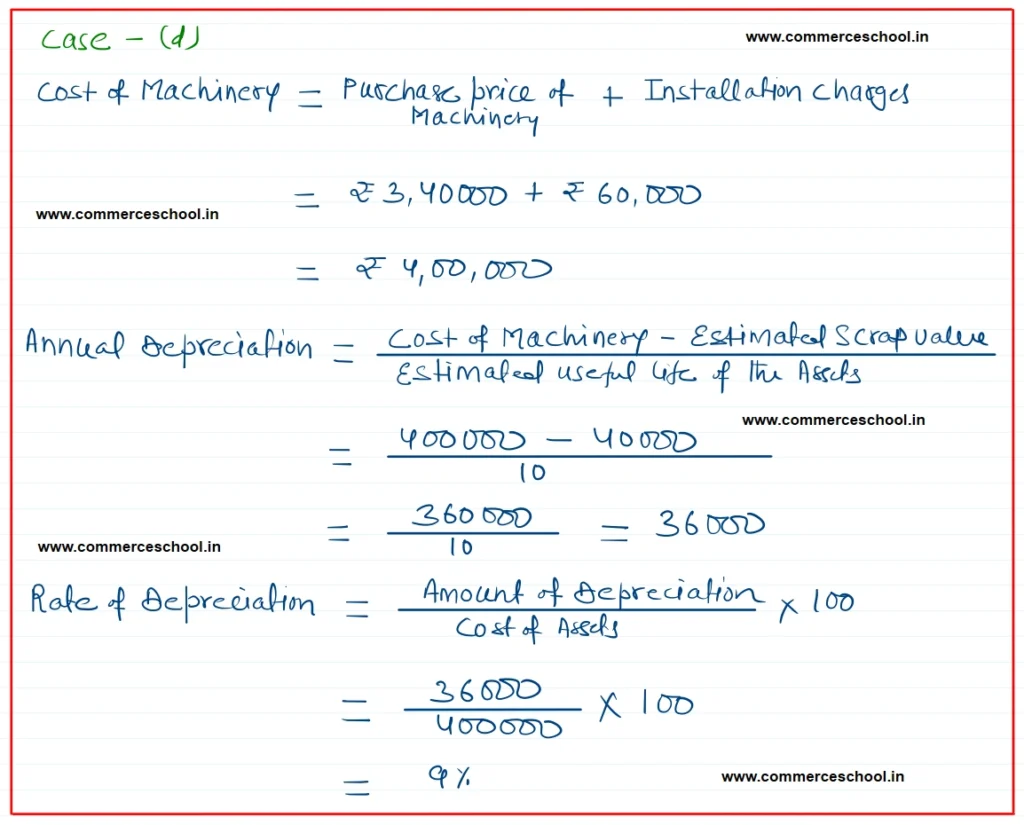 Case - (d)
www.commerceschool.in
Cost of Machinery = Purchase price of Machinery + Installation charges
= ₹ 3,40000 + ₹ 60,000
www.commerceschool.in
= ₹ 4,00,000
Annual Depreciation = Cost of Machinery - Estimated Scrap value
Estimated useful life of the Assets
www.commerceschool.in
= 400000 - 40000
10
= 360000 = 36000
10
www.commerceschool.in
Rate of Depreciation = Amount of Depreciation × 100
Cost of Assets
= 36000 × 100
400000
= 9%
www.commerceschool.in